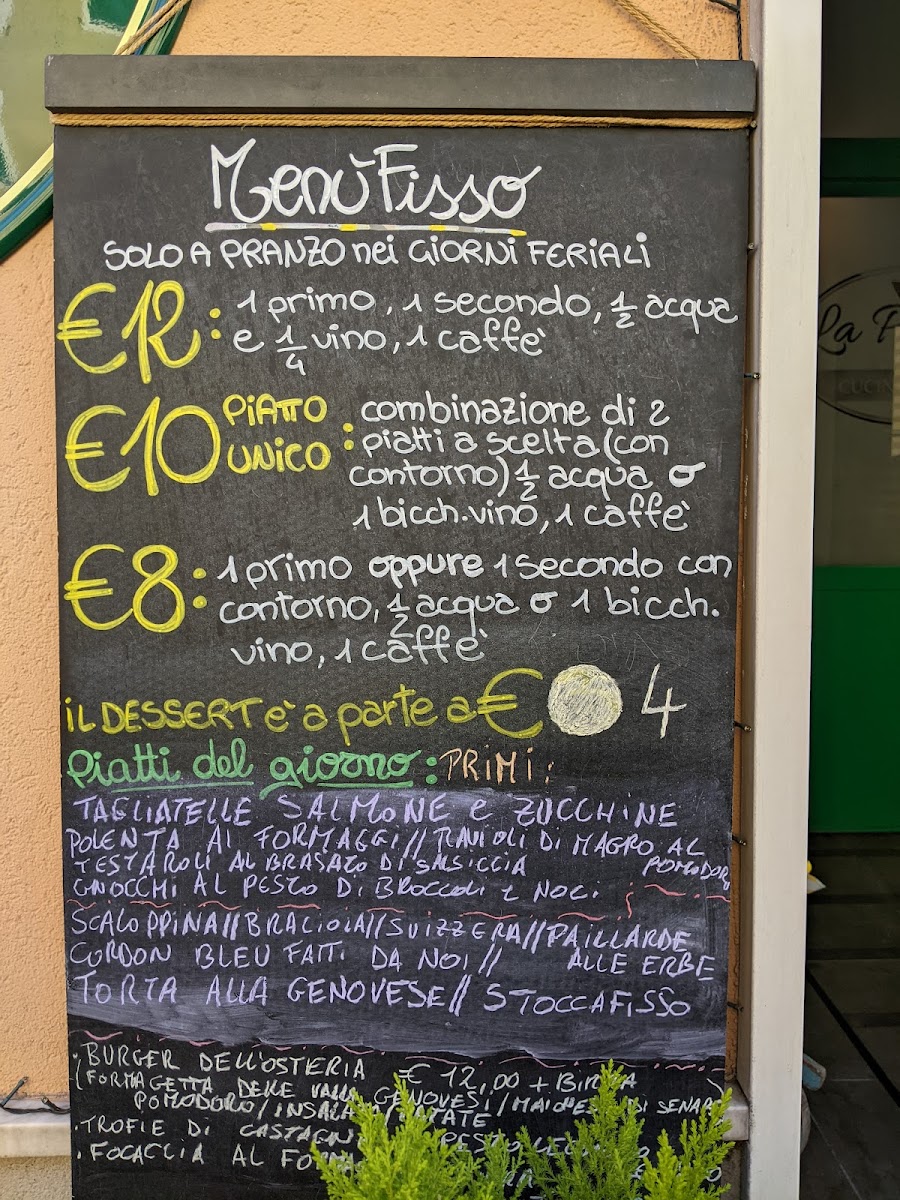 Menù Fisso
SOLO A PRANZO nei GIORNI FERIALI
€12: 1 primo, 1 secondo, 1/2 acqua
e 1/4 vino, 1 caffè
€10 PIATTO UNICO: combinazione di 2
piatti a scelta (con
contorno) 1/2 acqua o
1 bicch. vino, 1 caffè
€8: 1 primo oppure 1 secondo con
contorno, 1/2 acqua o 1 bicch.
vino, 1 caffè
iL DESSERT è a parte a € 4
Piatti del giorno: PRIMI:
TAGLIATELLE SALMONE e ZUCCHINE
POLENTA AI FORMAGGI // RAVIOLI DI MAGRO AL
POMODORO
TESTAROLI AL BRASATO DI SALSICCIA
GNOCCHI AL PESTO DI BROCCOLI e NOCI
SCALOPPINA // BRACIOLA // SVIZZERA // PAILLARDE
ALLE ERBE
CORDON BLEU FATTI DA NOI //
TORTA ALLA GENOVESE // STOCCAFISSO
· BURGER DELL'OSTERIA € 12,00 + BIRRA
(FORMAGETTA DELLE VALLI GENOVESI / MAIONESE DI SENAPE
POMODORO / INSALATA / PATATE
· TROFIE DI CASTAGNE PESTO
· FOCACCIA AL
La
CUCIN